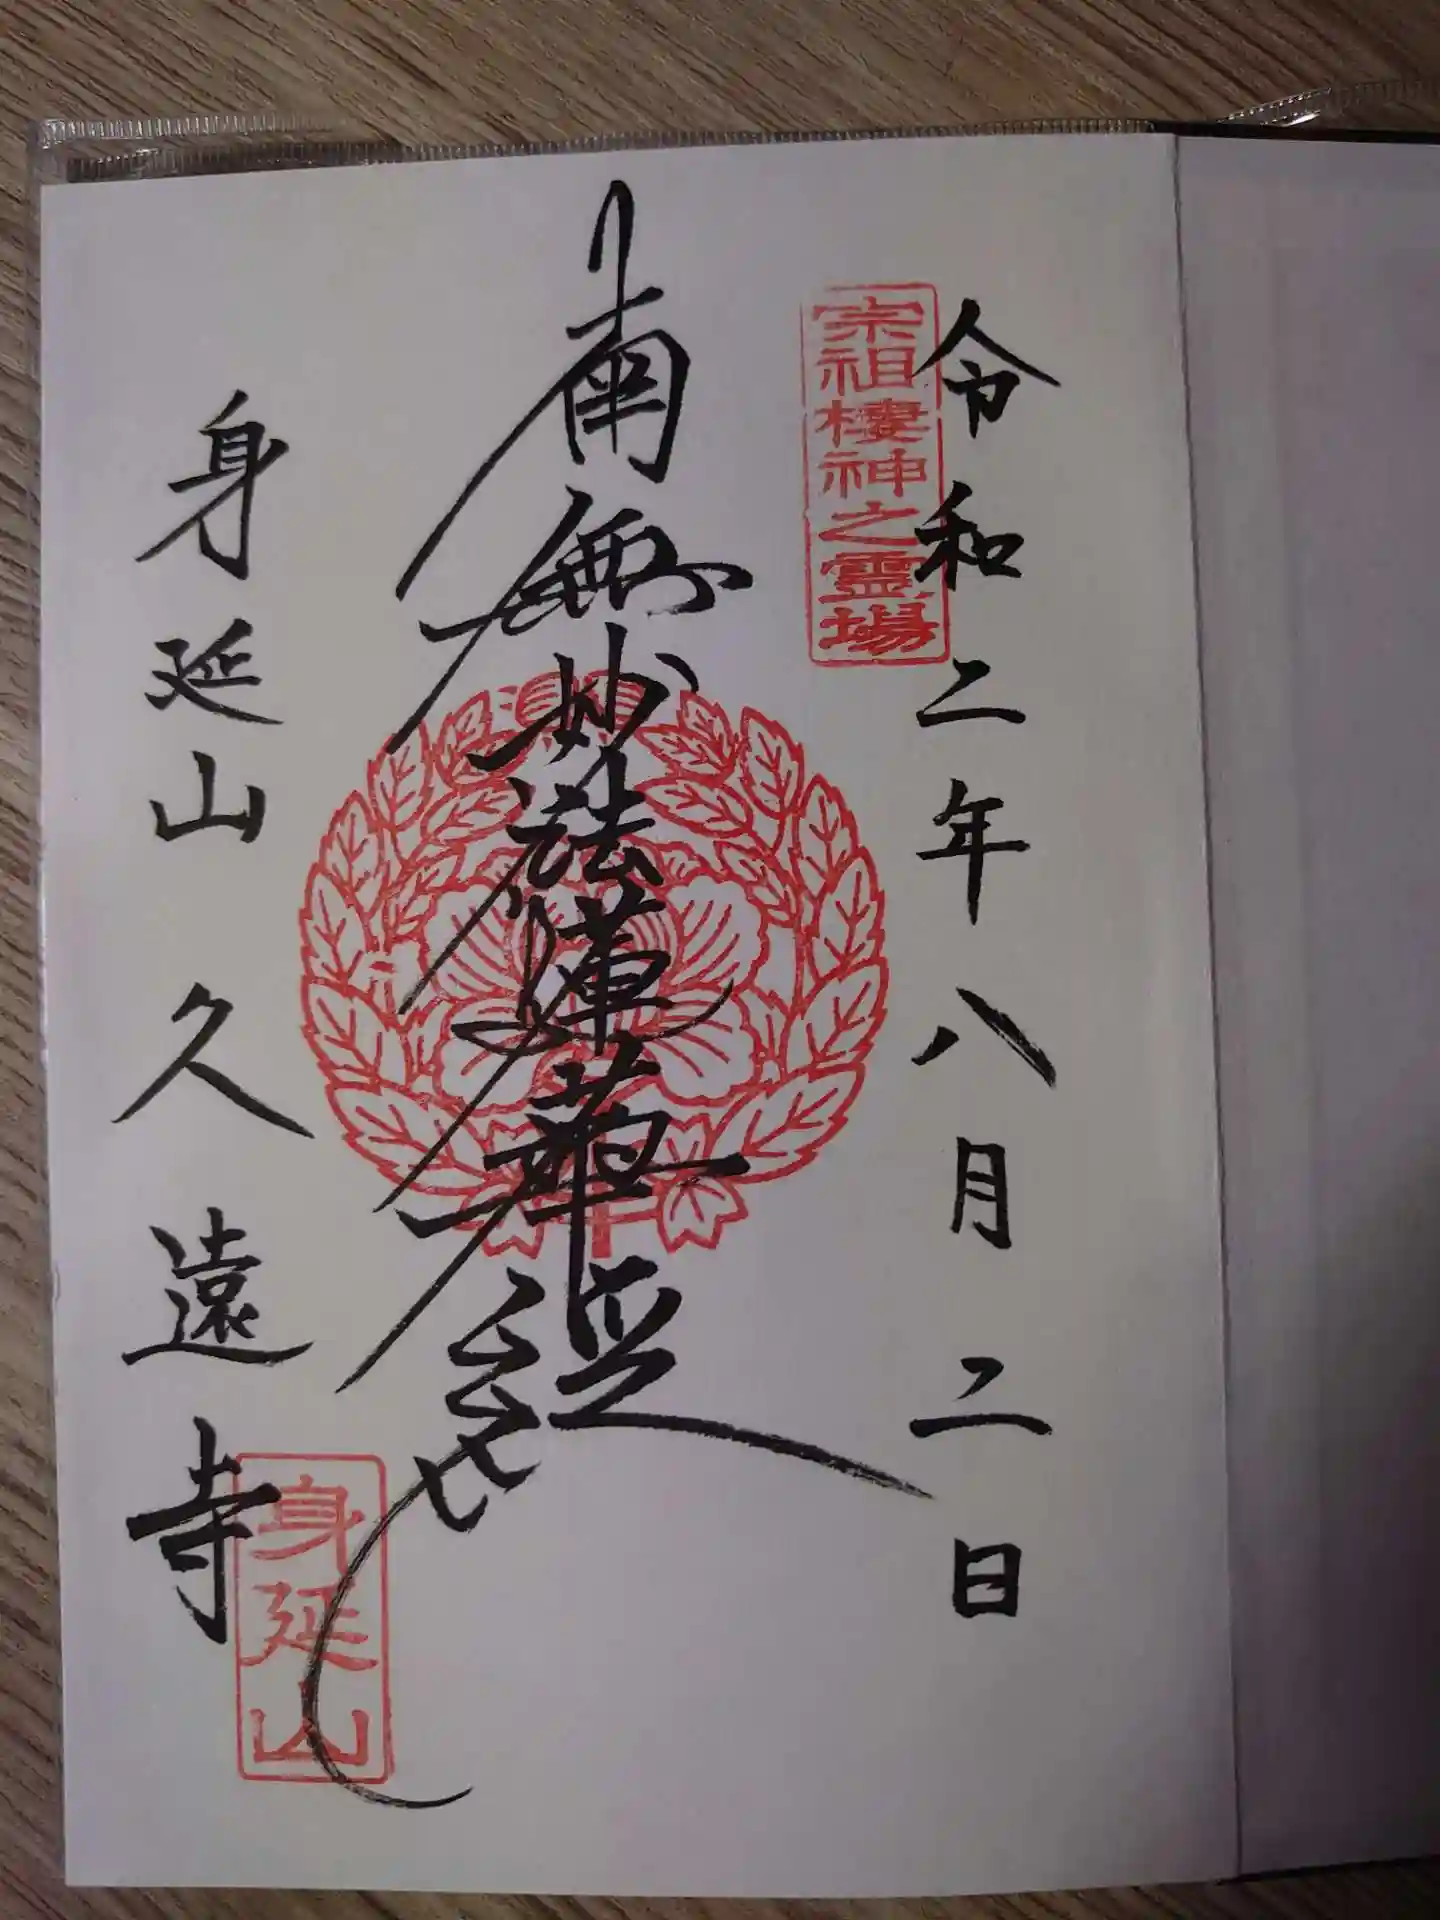 令和二年八月二日
宗祖棲神之霊場
南無妙法蓮華経
身延山久遠寺
身延山